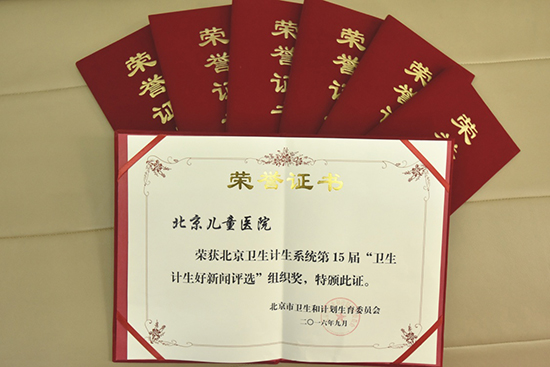 荣誉证
荣誉证
荣誉证
荣誉
荣誉
荣
荣誉证书
北京儿童医院
荣获北京卫生计生系统第15届“卫生
计生好新闻评选”组织奖，特颁此证。
北京市卫生和计划生育委员会
二〇一六年九月